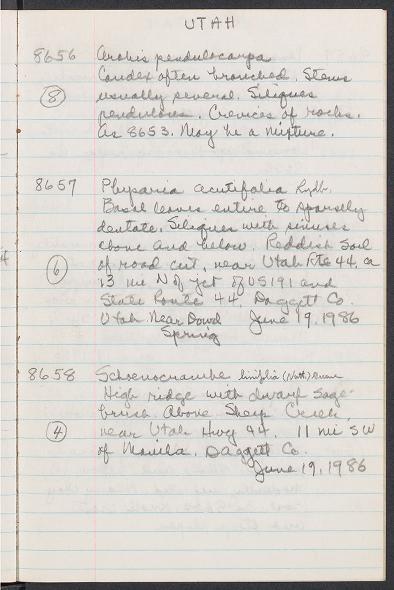 UTAH
8656 Arabis pendulocarpa
Caudex often branched. Stems
usually several. Siliques
8 pendulous. Crevices of rocks.
As 8653. May be a mixture.
8657 Physaria acutifolia Rydb.
Basal leaves entire to sparsely
dentate. Siliques with sinuses
above and below. Reddish soil
6 of road cut, near Utah Rte 44, ca
.3 mi N of jct of US 191 and
State Route 44. Daggett Co.
Utah Near Dowd June 19, 1986
Spring
8658 Schoenocrambe linifolia (Nutt.) Greene
High ridge with dwarf sage-
brush above Sheep Creek
4 near Utah Hwy 44. 11 mi SW
of Manila. Daggett Co.
June 19, 1986